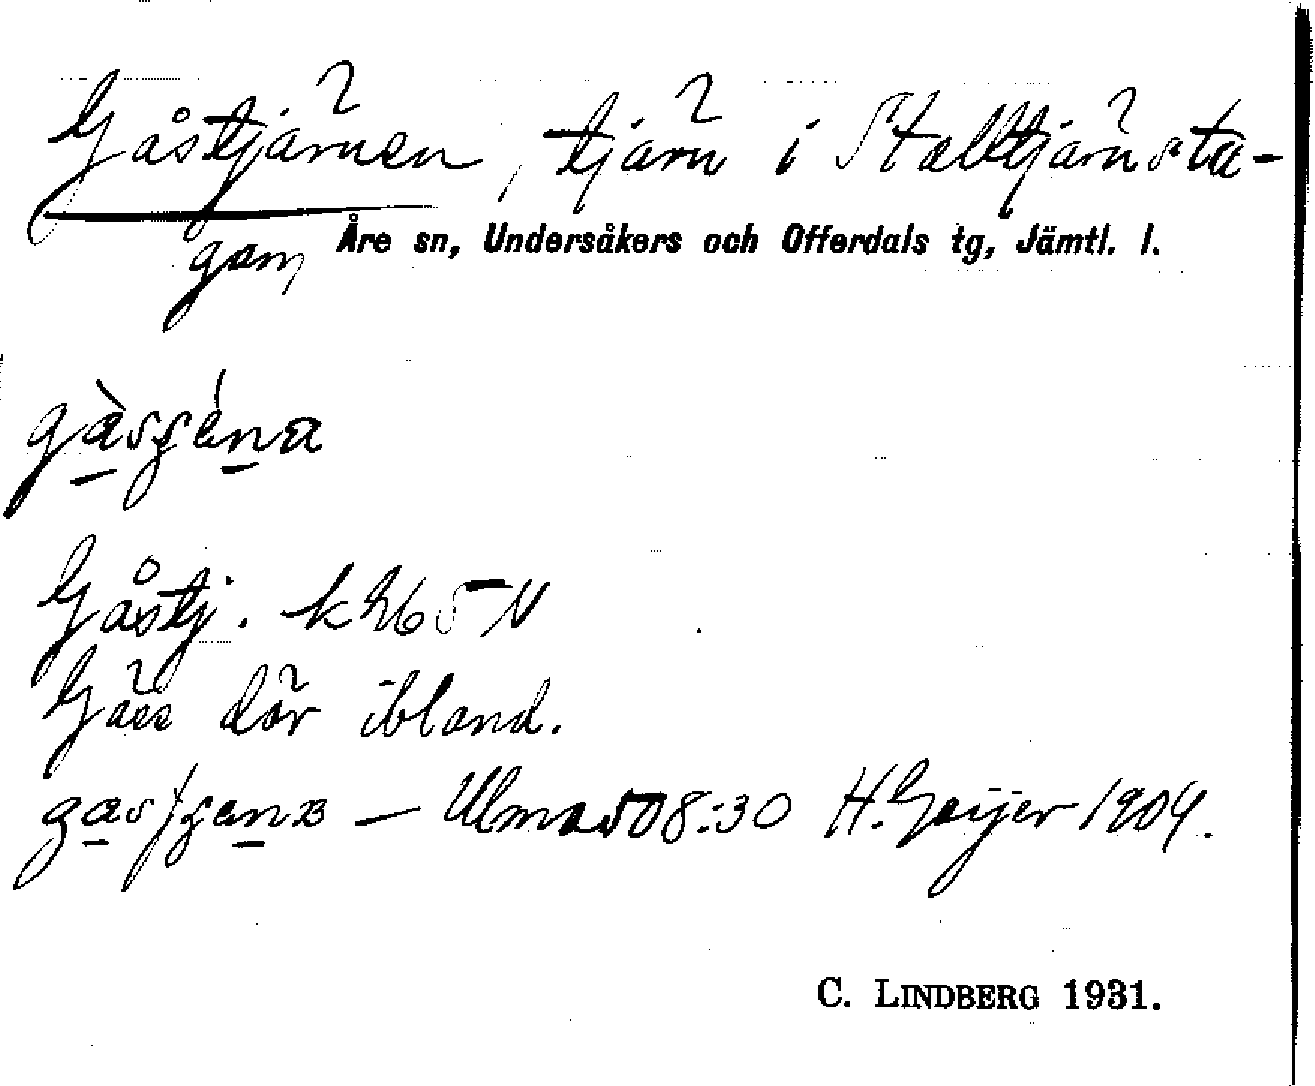 Gåstjärnen, tjärn i Stalltjärnsta-
gan, Åre sn, Undersåkers och Offerdals tg, Jämtl. l.
Gåstj. k h65 N
Gäss där ibland.
— Ulma 508:30 H. Geijer 1904.
C. LINDBERG 1931.